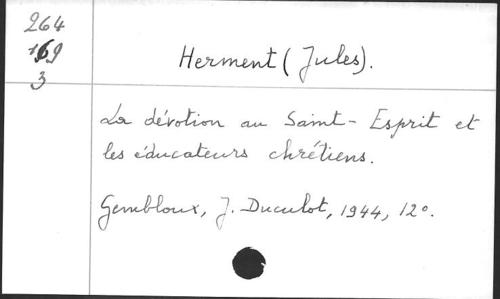 264
169
3
Herment (Jules).
La dévotion au Saint-Esprit et
les éducateurs chrétiens.
Gembloux, J. Duculot, 1944, 12°.